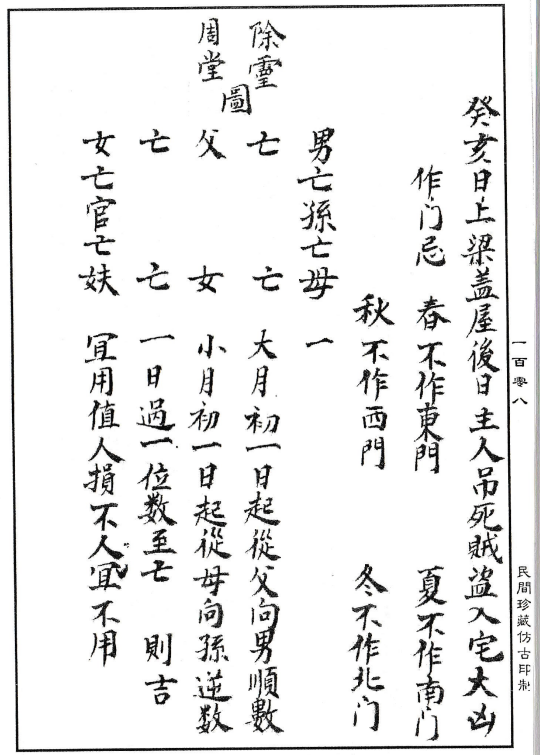 癸亥日上梁蓋屋後日主人吊死賊盜入宅大凶
作门忌 春不作東門 夏不作南门
秋不作西門 冬不作北门
除靈
周堂
圖
男亡孫亡母 一
亡 亡 大月初一日起從父向男順數
父 女 小月初一日起從母向孫逆数
亡 亡 一日過一位数至亡 則吉
女亡官亡妖 宜用值人損不人宜不用
一百零八
民間珍藏仿古印制